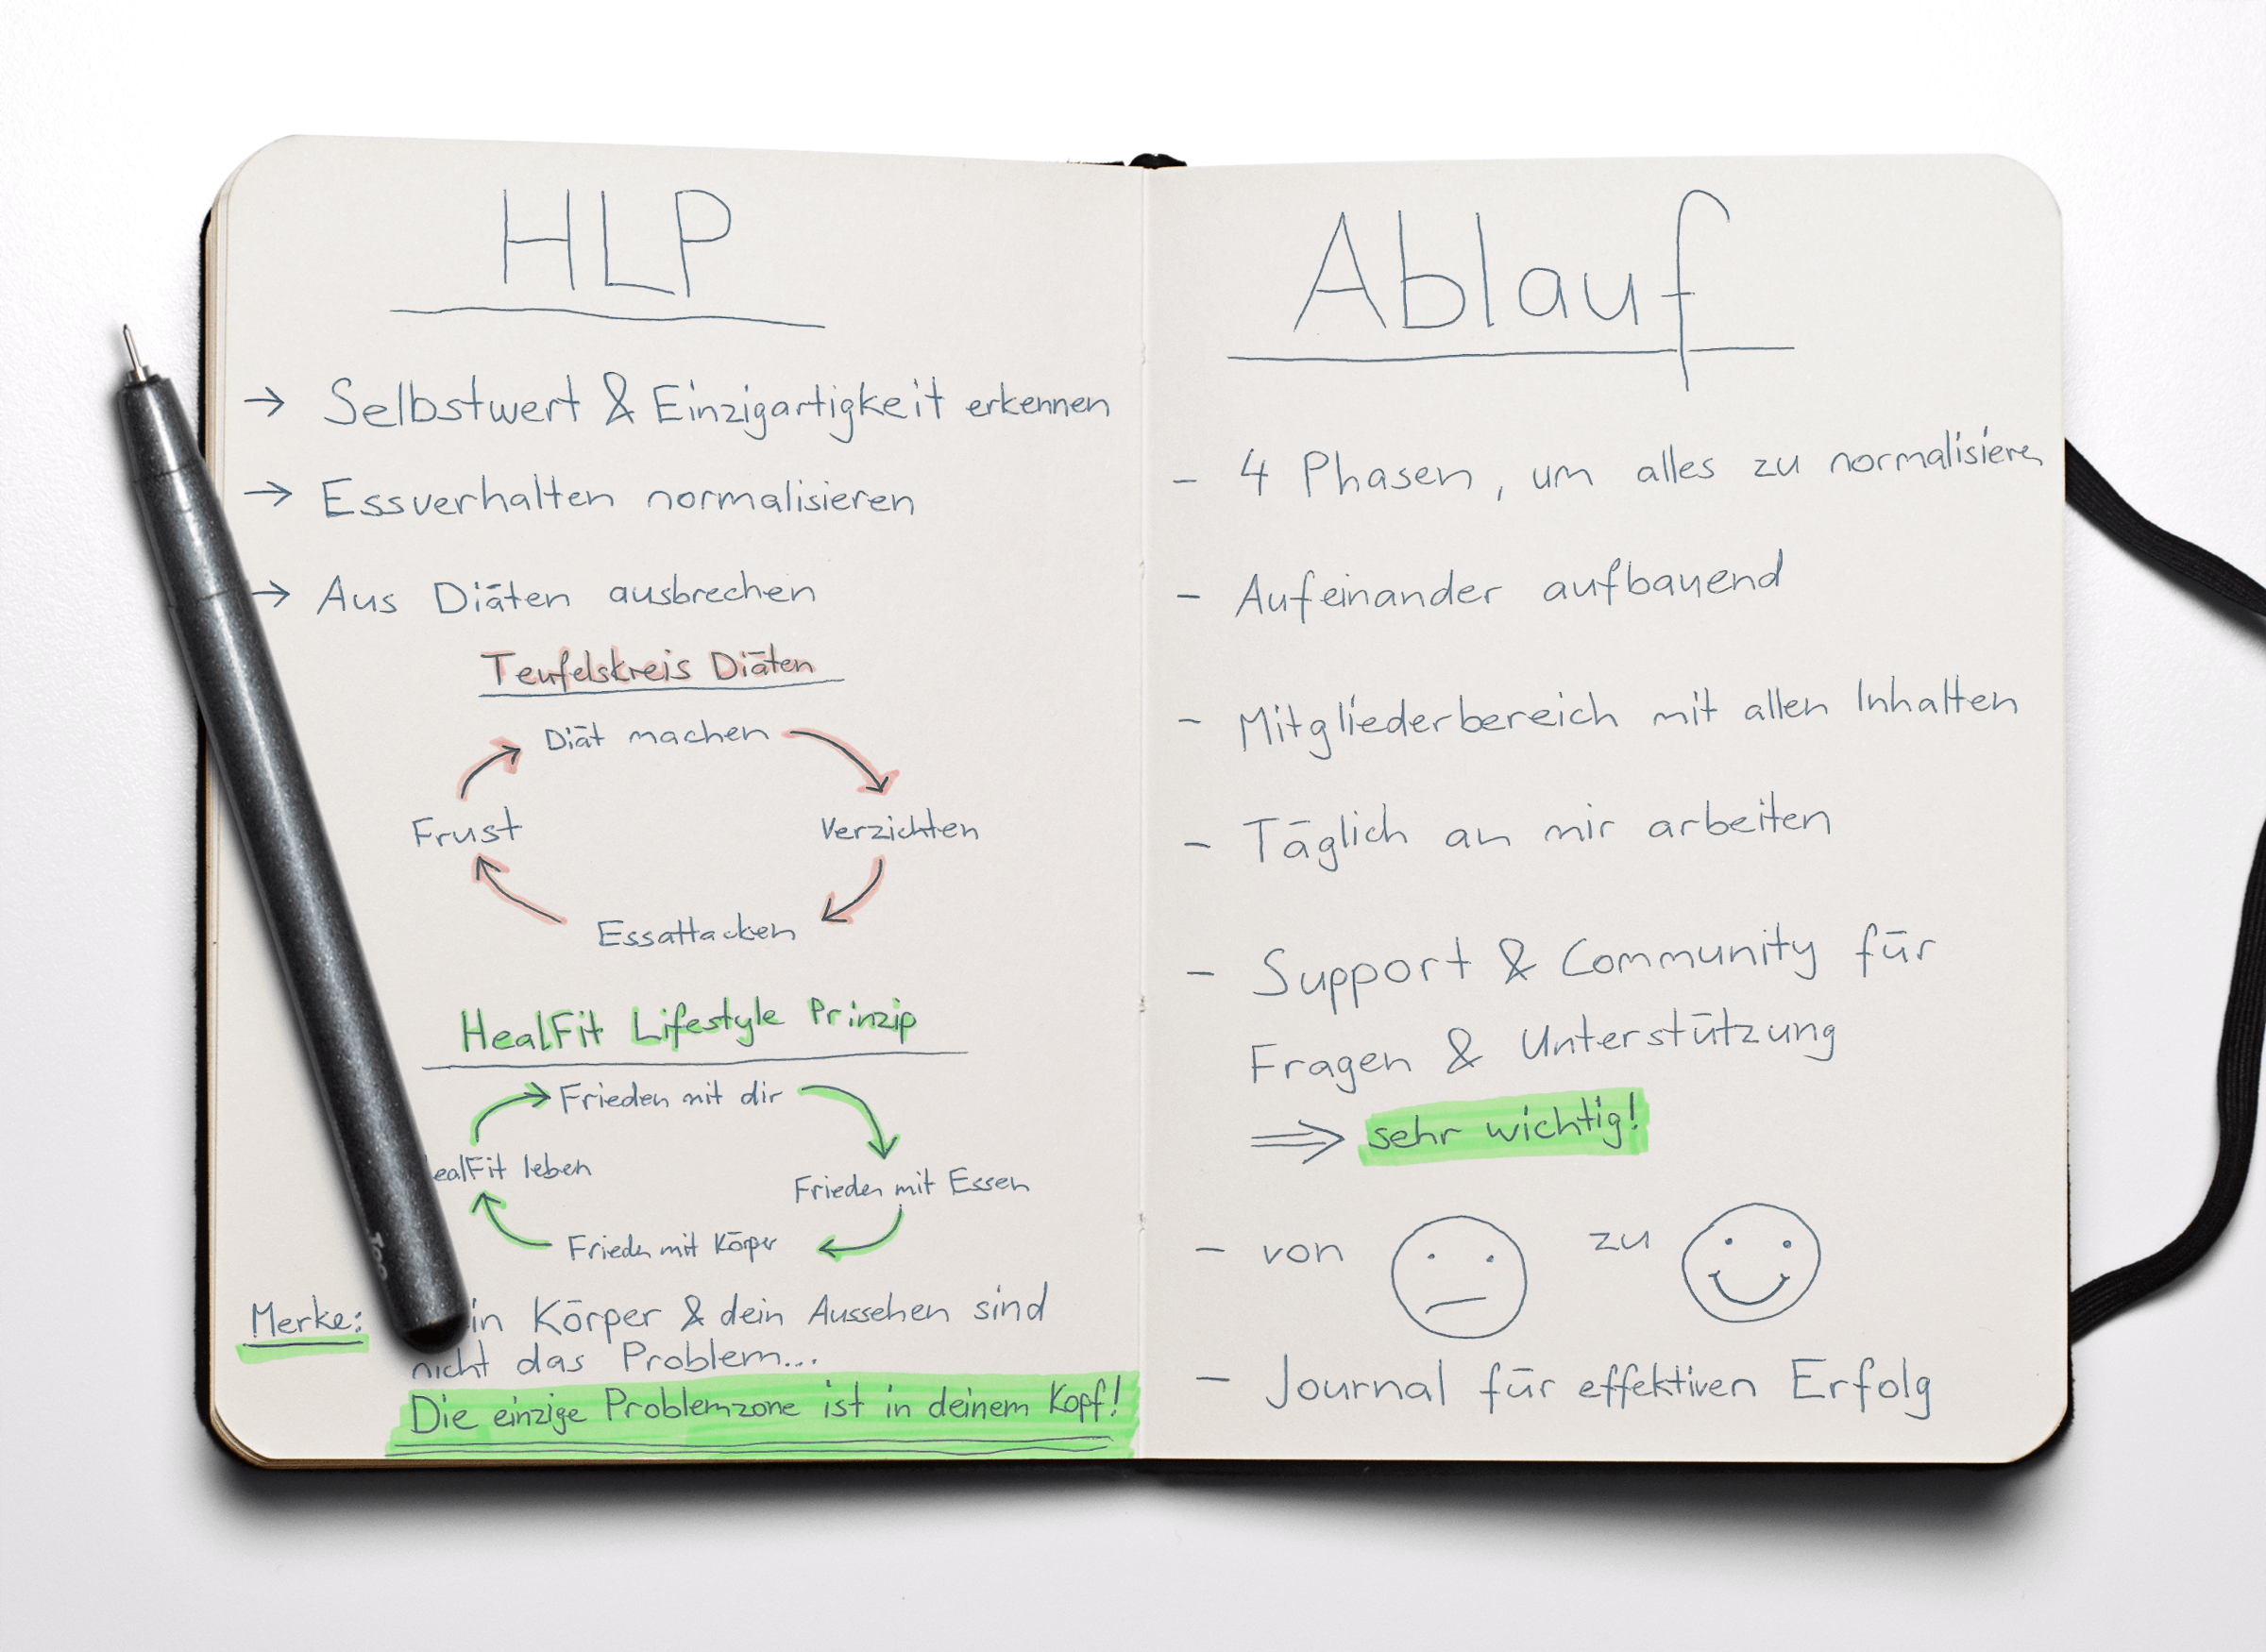 HLP
→ Selbstwert & Einzigartigkeit erkennen
→ Essverhalten normalisieren
→ Aus Diäten ausbrechen
Teufelskreis Diäten
Diät machen
Frust
Verzichten
Essattacken
HealFit Lifestyle Prinzip
Frieden mit dir
ealFit leben
Frieden mit Essen
Frieden mit Körper
Merke: in Körper & dein Aussehen sind
nicht das Problem...
Die einzige Problemzone ist in deinem Kopf!
Ablauf
- 4 Phasen, um alles zu normalisieren
- Aufeinander aufbauend
- Mitgliederbereich mit allen Inhalten
- Täglich an mir arbeiten
- Support & Community für
Fragen & Unterstützung
⇒ sehr wichtig!
- von zu
- Journal für effektiven Erfolg